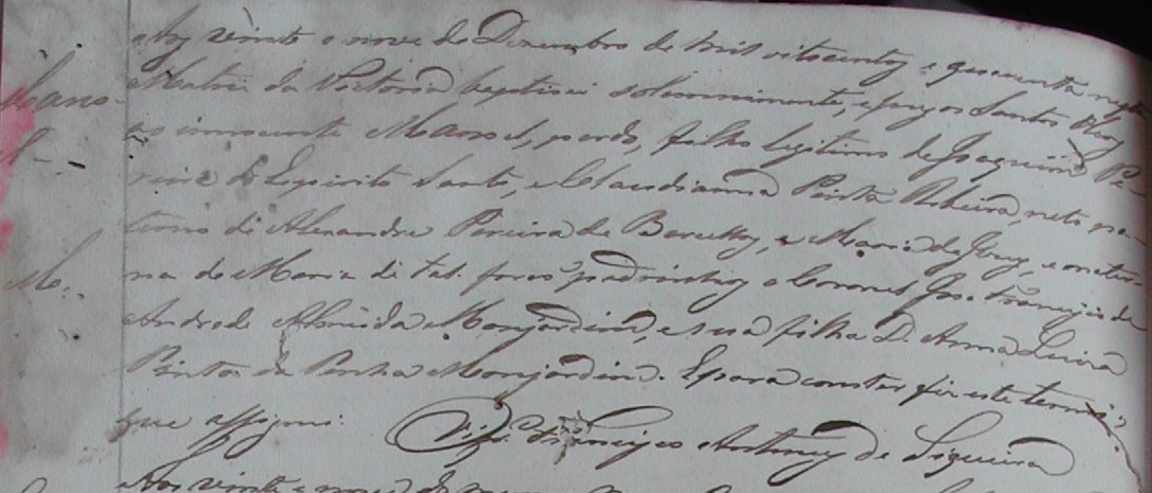 Mano-
el
M.
Aos vinte e nove de Dezembro de mil oitocentos e quarenta nesta
Matriz da Victoria baptisei solemnimente, e puz os Santos Oleos
ao innocente Manoel, pardo, filho legitimo de Joaquim Pe-
reira do Espirito Santo, e Claudianna Pinta Ribeira, neto pa-
terno de Alexandre Pereira de Barcellos, e Maria de Jesus, e mater-
na de Maria de tal. forão padrinhos o Coronel José Francisco de
Andrade Almeida Monjardim, e sua filha D. Anna Luiza
Pinta da Penha Monjardim. E para constar fiz este termo,
que assignei.
Vigr.º Francisco Antunes de Siqueira
Aos vinte e nove de